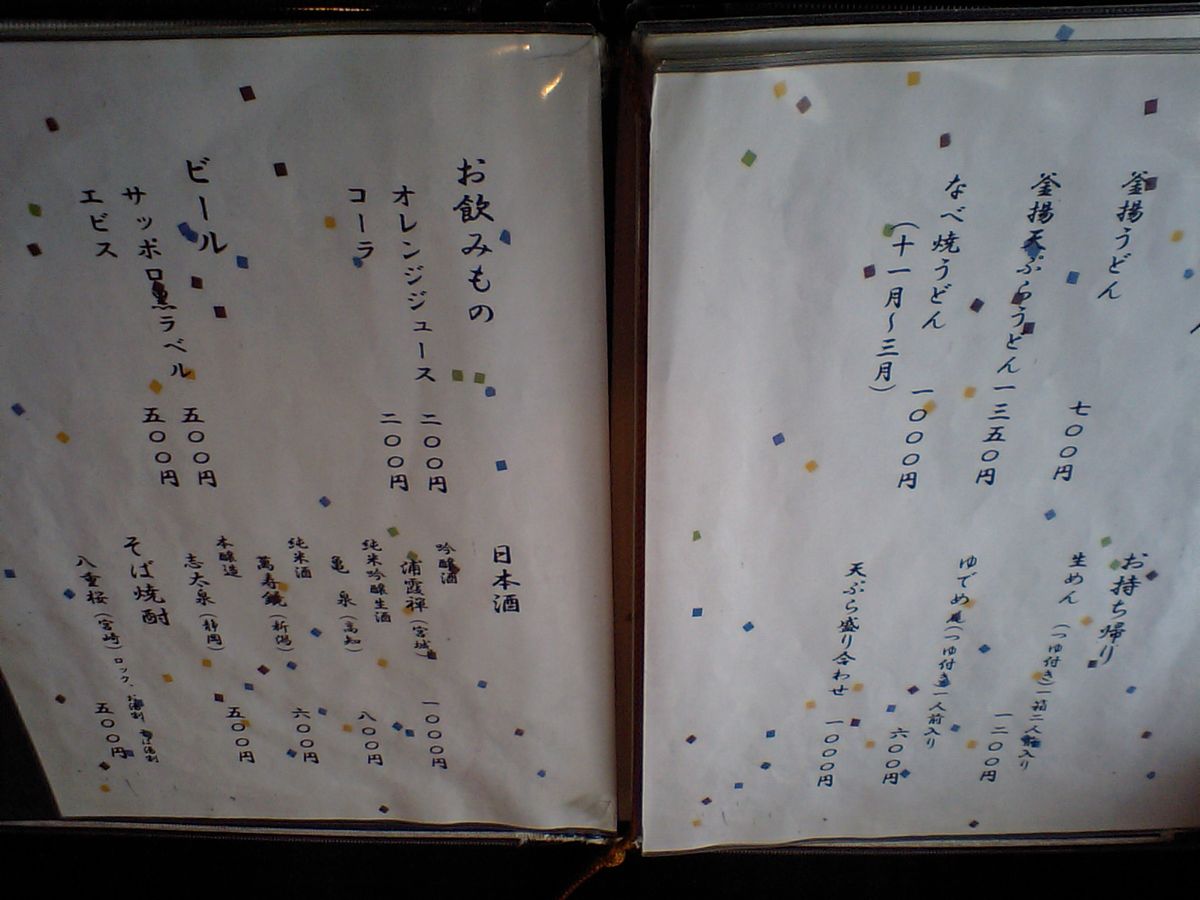 釜揚うどん
七〇〇円
釜揚天ぷらうどん 一三五〇円
なべ焼うどん
(十一月～三月)
一〇〇〇円
お持ち帰り
生めん (つゆ付き)一箱二人前入り
一二〇〇円
ゆでめん(つゆ付き)一人前入り
六〇〇円
天ぷら盛り合わせ
一〇〇〇円
お飲みもの
オレンジジュース 二〇〇円
コーラ 二〇〇円
ビール
サッポロ黒ラベル 五〇〇円
エビス 五〇〇円
日本酒
吟醸酒
浦霞禅(宮城) 一〇〇〇円
純米吟醸生酒
亀泉(高知) 八〇〇円
純米酒
萬寿鏡(新潟) 六〇〇円
本醸造
志太泉(静岡) 五〇〇円
そば焼酎
八重桜(宮崎) ロック、お湯割 そば湯割
五〇〇円